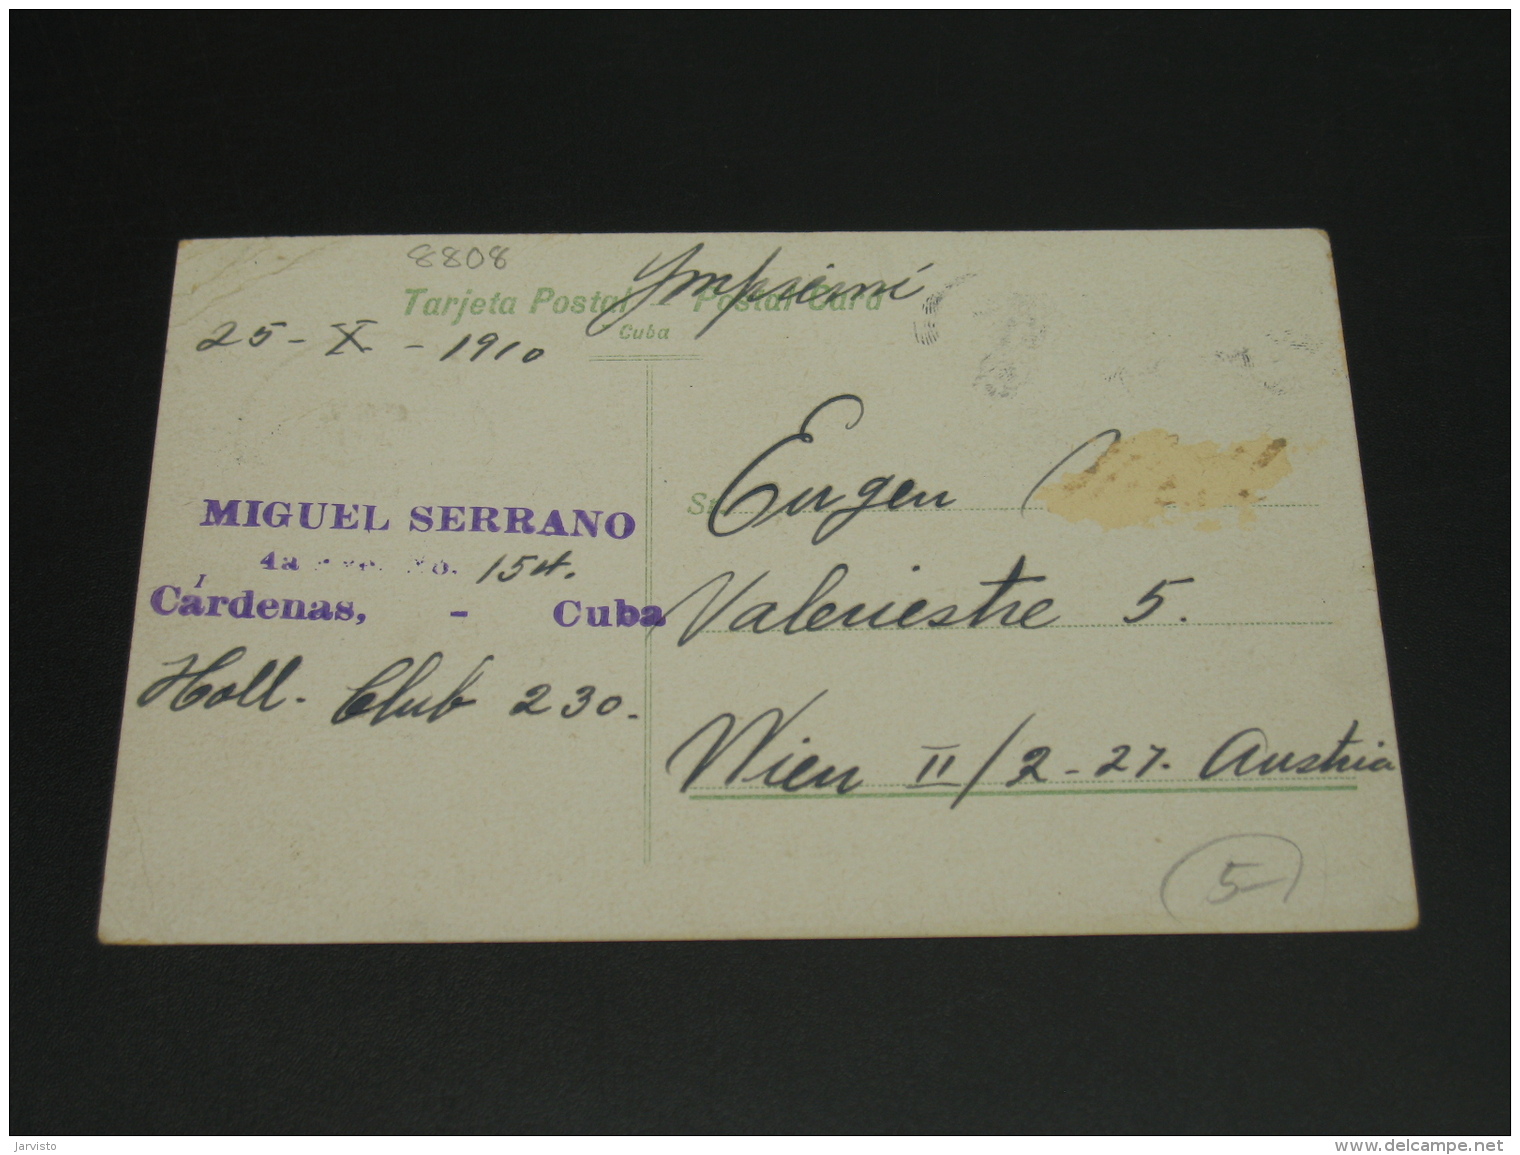 8808
Imprimé
Tarjeta Postal - Postal Card
Cuba
25 - X - 1910
Eugen
MIGUEL SERRANO
4a No. 154.
Cárdenas, - Cuba
Valeriestre 5.
Holl. Club 230.
Wien II/2-27. Austria
5
jarvisto
www.delcampe.net